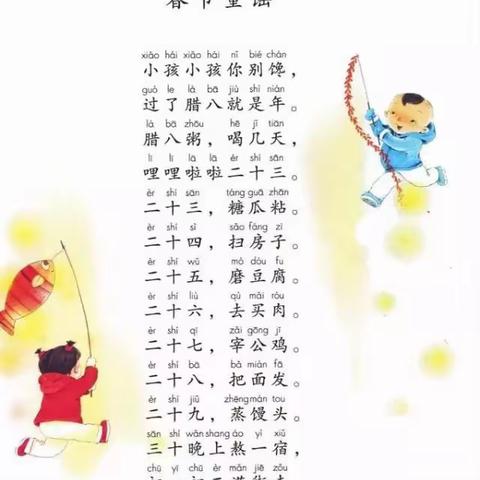 春节童谣
xiǎo hái xiǎo hái nǐ bié chán
小孩小孩你别馋，
guò le là bā jiù shì nián
过了腊八就是年。
là bā zhōu hē jǐ tiān
腊八粥，喝几天，
lī lī lā lā èr shí sān
哩哩啦啦二十三。
èr shí sān táng guā zhān
二十三，糖瓜粘。
èr shí sì sǎo fáng zi
二十四，扫房子。
èr shí wǔ mò dòu fu
二十五，磨豆腐。
èr shí liù qù mǎi ròu
二十六，去买肉。
èr shí qī zǎi gōng jī
二十七，宰公鸡。
èr shí bā bǎ miàn fā
二十八，把面发。
èr shí jiǔ zhēng mán tou
二十九，蒸馒头。
sān shí wǎn shang áo yì xiǔ
三十晚上熬一宿，
chū yī chū èr mǎn jiē zǒu